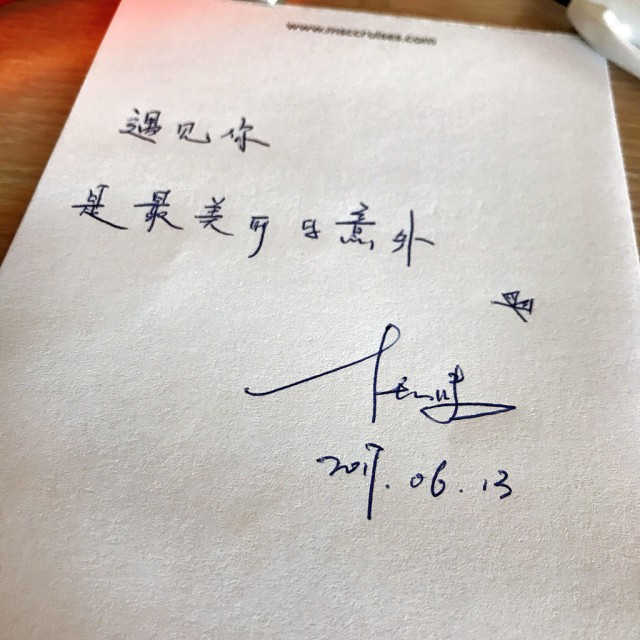 www.msccruises.com
遇见你
是最美意外
2017.06.13